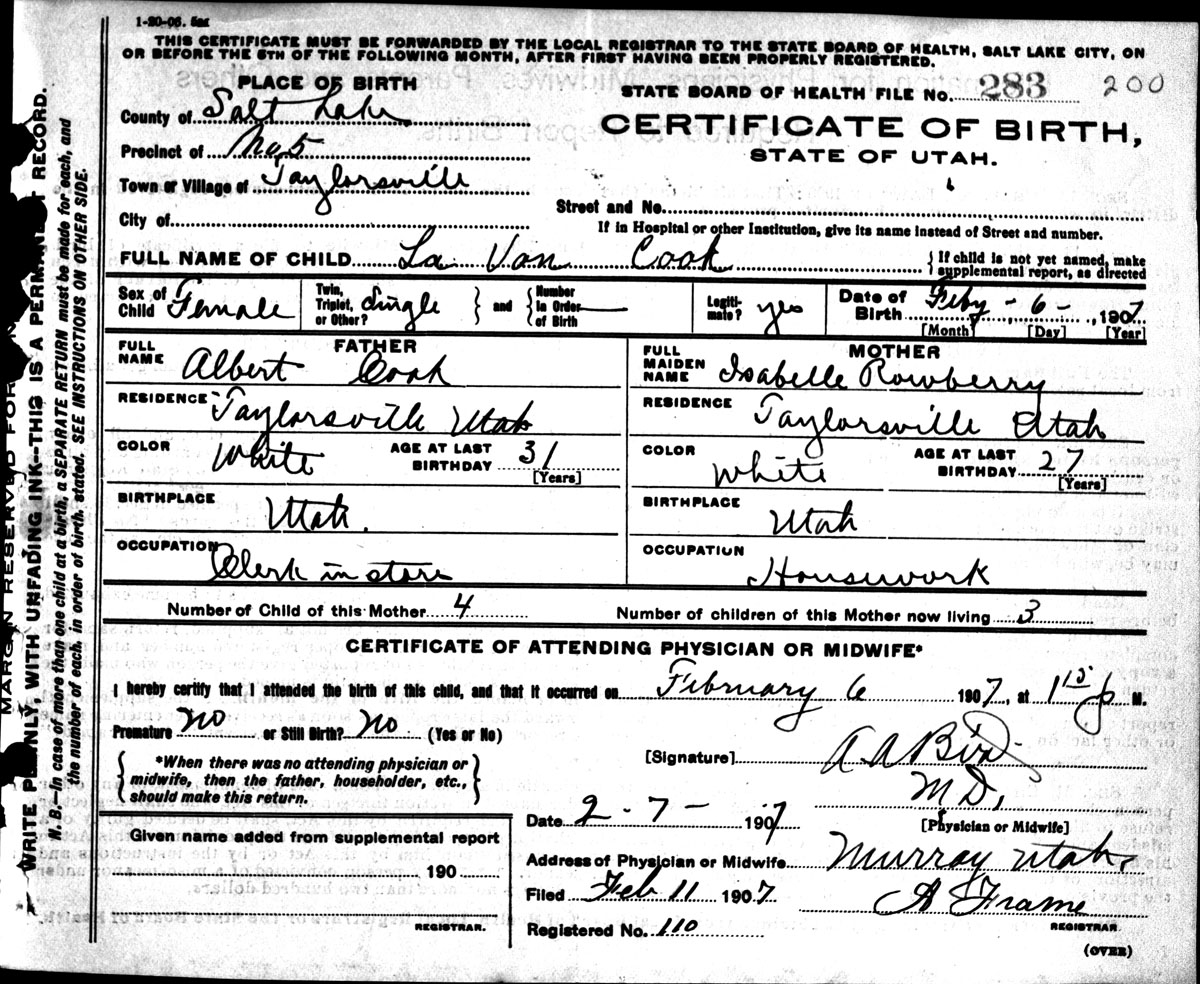 1-20-06. 5m
THIS CERTIFICATE MUST BE FORWARDED BY THE LOCAL REGISTRAR TO THE STATE BOARD OF HEALTH, SALT LAKE CITY, ON
OR BEFORE THE 5TH OF THE FOLLOWING MONTH, AFTER FIRST HAVING BEEN PROPERLY REGISTERED.
PLACE OF BIRTH
County of Salt Lake
Precinct of No 5
Town or Village of Taylorsville
City of
STATE BOARD OF HEALTH FILE No. 283 200
CERTIFICATE OF BIRTH,
STATE OF UTAH.
Street and No.
If in Hospital or other Institution, give its name instead of Street and number.
FULL NAME OF CHILD La Van Cook
{ If child is not yet named, make
supplemental report, as directed
Sex of Child Female
Twin, Triplet, or Other? Single } and { Number in Order of Birth —
Legiti-mate? yes
Date of Birth Feby - 6 - 1907
[Month] [Day] [Year]
FATHER
FULL NAME Albert Cook
RESIDENCE Taylorsville Utah
COLOR White AGE AT LAST BIRTHDAY 31 [Years]
BIRTHPLACE Utah.
OCCUPATION Clerk in store
MOTHER
FULL MAIDEN NAME Isabelle Rowberry
RESIDENCE Taylorsville Utah
COLOR White AGE AT LAST BIRTHDAY 27 [Years]
BIRTHPLACE Utah
OCCUPATION Housework
Number of Child of this Mother 4 Number of children of this Mother now living 3
CERTIFICATE OF ATTENDING PHYSICIAN OR MIDWIFE*
I hereby certify that I attended the birth of this child, and that it occurred on February 6 1907, at 1 15 p M.
Premature no or Still Birth? no (Yes or No)
{ *When there was no attending physician or
midwife, then the father, householder, etc.,
should make this return. }
[Signature] A A Bird
M D,
[Physician or Midwife]
Date 2 - 7 - 1907
Address of Physician or Midwife Murray Utah
Filed Feb 11 1907 A Frame
REGISTRAR.
Registered No. 110
(OVER)
Given name added from supplemental report
190
REGISTRAR.
MARGIN RESERVED FOR
WRITE PLAINLY, WITH UNFADING INK--THIS IS A PERMANENT RECORD.
N. B.—In case of more than one child at a birth, a SEPARATE RETURN must be made for each, and
the number of each, in order of birth, stated. SEE INSTRUCTIONS ON OTHER SIDE.